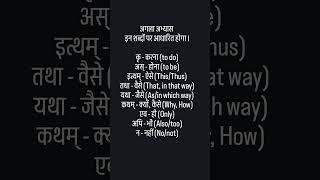 अगला अभ्यास
इन शब्दों पर आधारित होगा ।
कृ - करना (to do)
अस् - होना (to be)
इत्थम् - ऐसे (This/Thus)
तथा - वैसे (That, in that way)
यथा - जैसे (As/in which way)
कथम् - क्यों, कैसे (Why, How)
एव - ही (Only)
अपि - भी (Also/too)
न - नहीं (No/not)